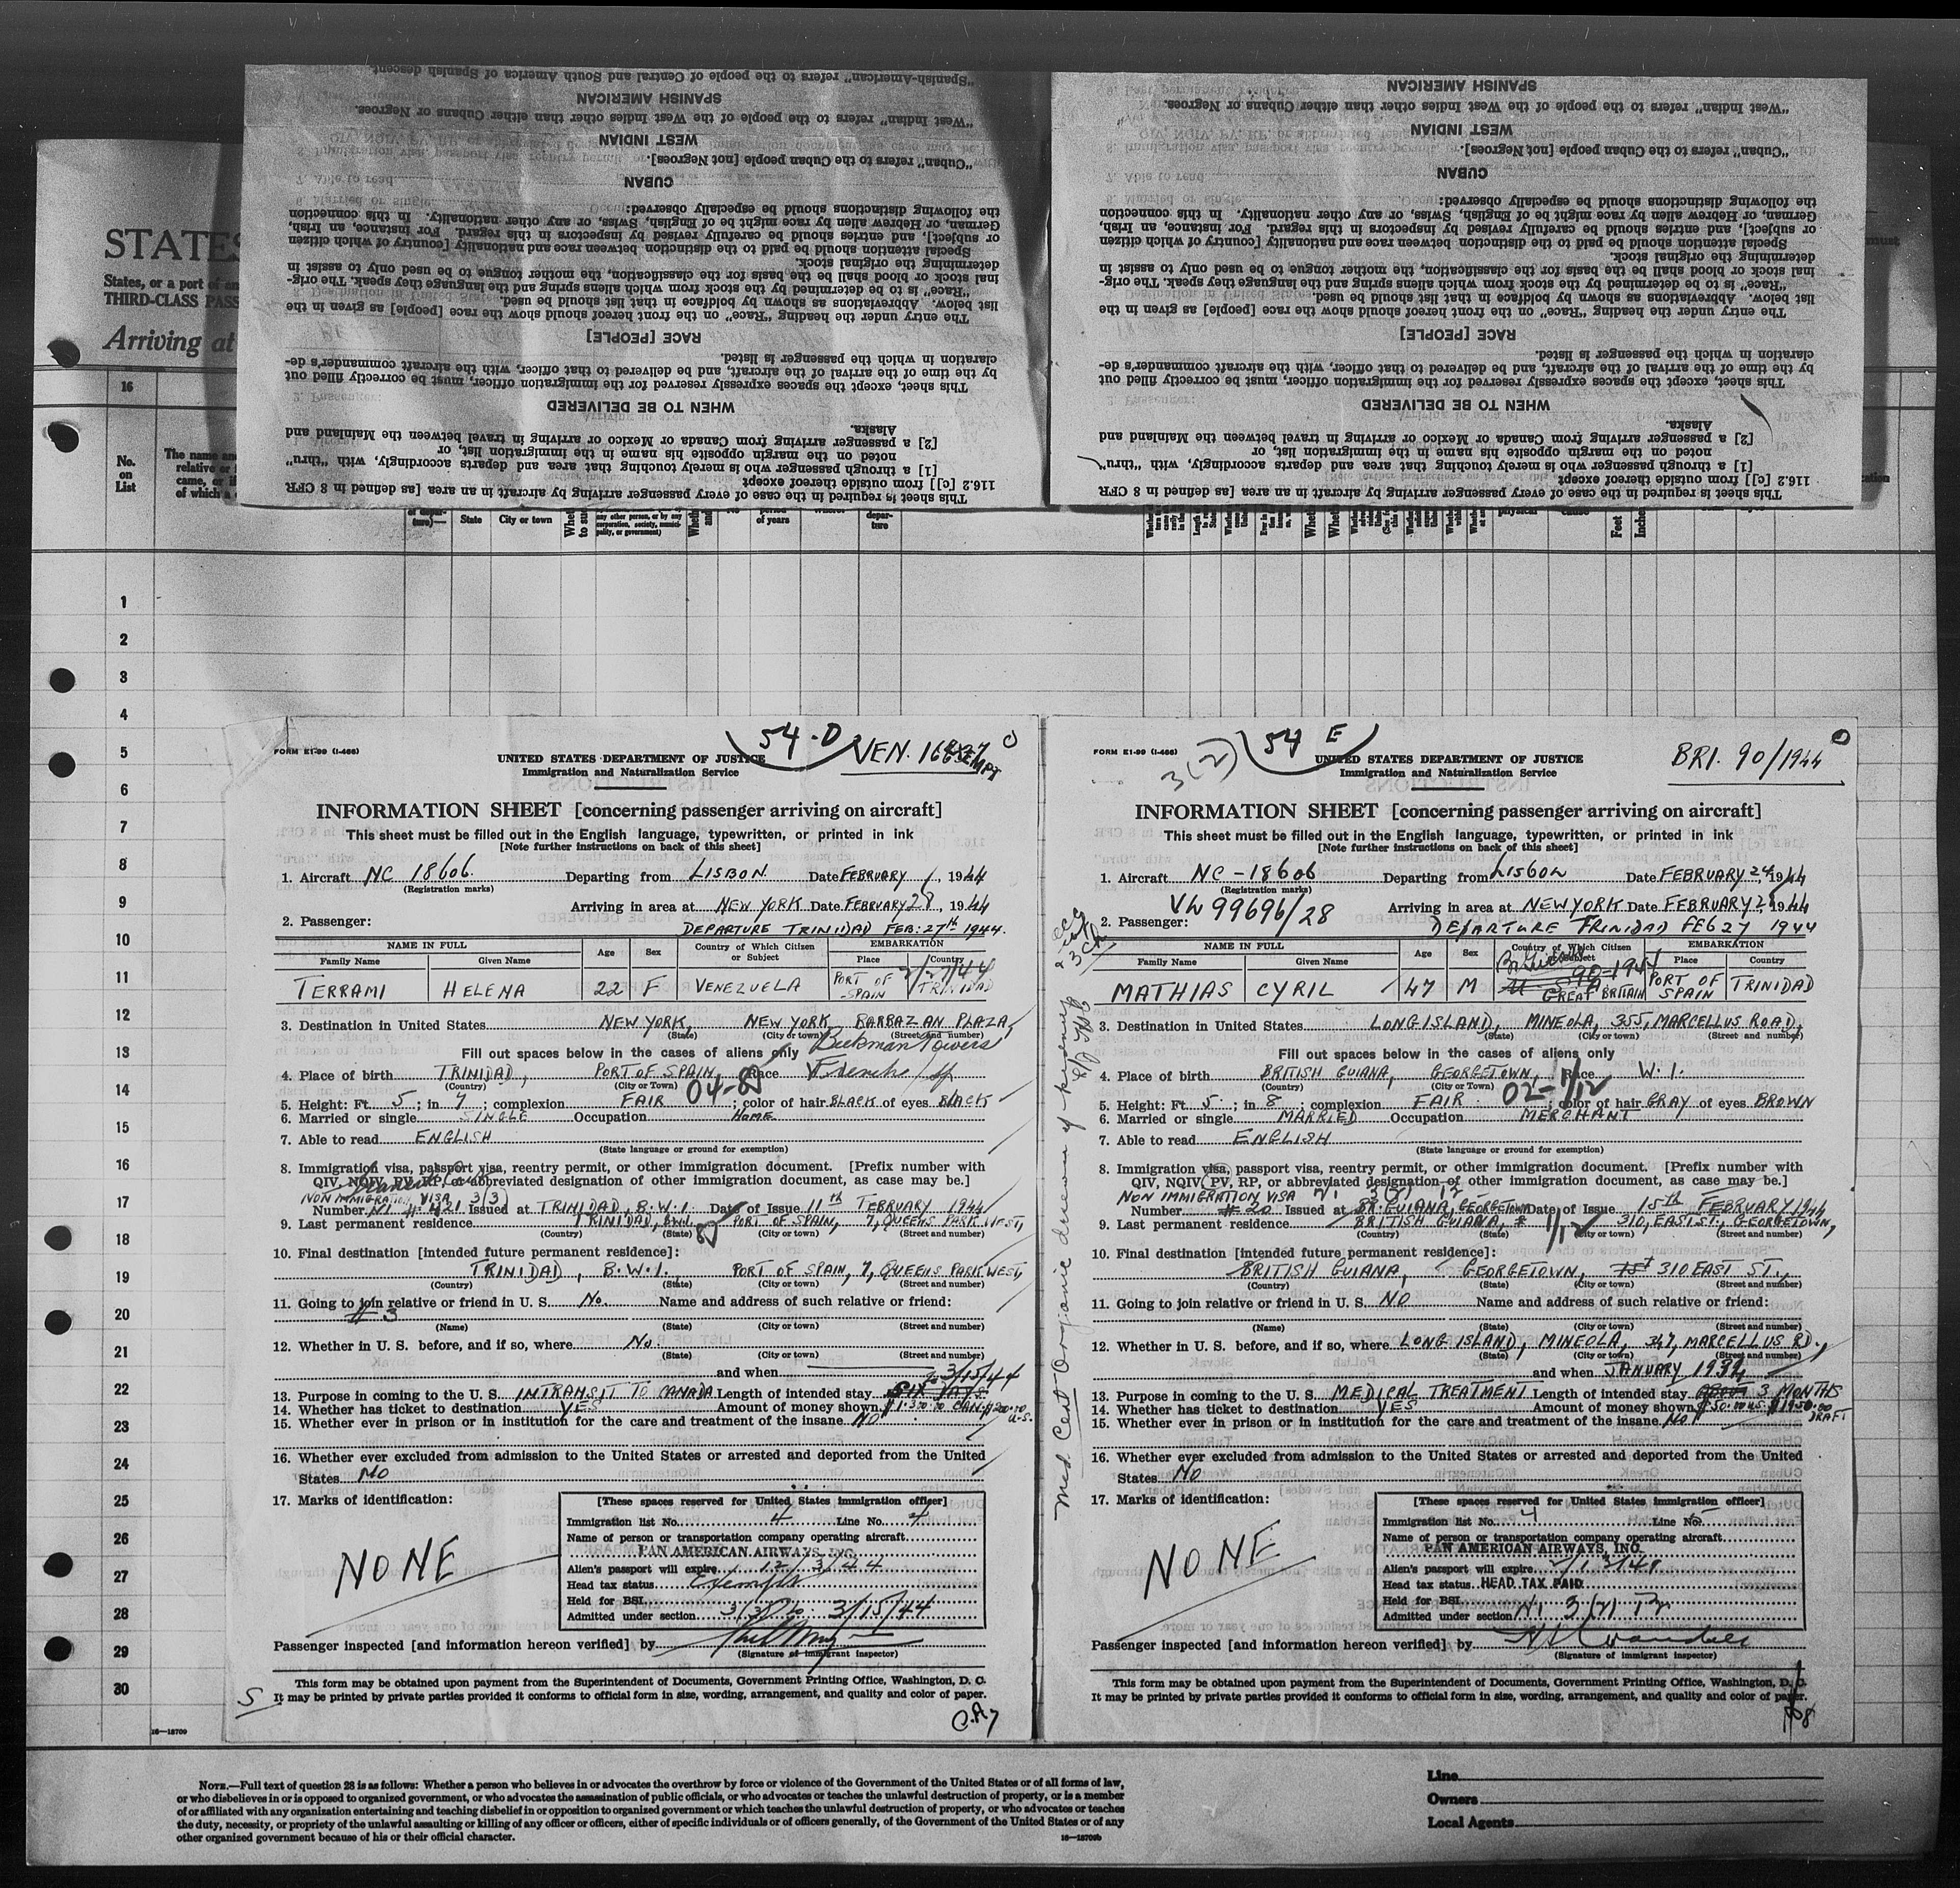 "Spanish-American" refers to the people of Central and South America of Spanish descent.
SPANISH AMERICAN
"West Indian" refers to the people of the West Indies other than either Cubans or Negroes.
WEST INDIAN
"Cuban" refers to the Cuban people [not Negroes].
CUBAN
the following distinctions should be especially observed:
German, or Hebrew alien by race might be of English, Swiss, or any other nationality. In this connection
or subject], and entries should be carefully revised by inspectors in this regard. For instance, an Irish,
Special attention should be paid to the distinction between race and nationality [country of which citizen
determining the original stock.
inal stock or blood shall be the basis for the classification, the mother tongue to be used only to assist in
"Race" is to be determined by the stock from which aliens spring and the language they speak. The orig-
list below. Abbreviations as shown by boldface in that list should be used.
The entry under the heading "Race" on the front hereof should show the race [people] as given in the
RACE [PEOPLE]
claration in which the passenger is listed.
by the time of the arrival of the aircraft, and be delivered to that officer, with the aircraft commander's de-
This sheet, except the spaces expressly reserved for the immigration officer, must be correctly filled out
WHEN TO BE DELIVERED
Alaska.
[2] a passenger arriving from Canada or Mexico or arriving in travel between the Mainland and
noted on the margin opposite his name in the immigration list, or
[1] a through passenger who is merely touching that area and departs accordingly, with "thru"
116.2 [c]] from outside thereof except
This sheet is required in the case of every passenger arriving by aircraft in an area [as defined in 8 CFR
SPANISH AMERICAN
"West Indian" refers to the people of the West Indies other than either Cubans or Negroes.
WEST INDIAN
"Cuban" refers to the Cuban people [not Negroes].
CUBAN
the following distinctions should be especially observed:
German, or Hebrew alien by race might be of English, Swiss, or any other nationality. In this connection
or subject], and entries should be carefully revised by inspectors in this regard. For instance, an Irish,
Special attention should be paid to the distinction between race and nationality [country of which citizen
determining the original stock.
inal stock or blood shall be the basis for the classification, the mother tongue to be used only to assist in
"Race" is to be determined by the stock from which aliens spring and the language they speak. The orig-
list below. Abbreviations as shown by boldface in that list should be used.
The entry under the heading "Race" on the front hereof should show the race [people] as given in the
RACE [PEOPLE]
claration in which the passenger is listed.
by the time of the arrival of the aircraft, and be delivered to that officer, with the aircraft commander's de-
This sheet, except the spaces expressly reserved for the immigration officer, must be correctly filled out
WHEN TO BE DELIVERED
Alaska.
[2] a passenger arriving from Canada or Mexico or arriving in travel between the Mainland and
noted on the margin opposite his name in the immigration list, or
[1] a through passenger who is merely touching that area and departs accordingly, with "thru"
116.2 [c]] from outside thereof except
This sheet is required in the case of every passenger arriving by aircraft in an area [as defined in 8 CFR
STATES
States, or a port of
THIRD-CLASS PASS
Arriving at
16
No. on List
State
City or town
any other person, or by any corporation, society, munici-pality, or government)
of years
depar-ture
physical
cause
Feet
Inches
1
2
3
4
5
6
7
8
9
10
11
12
13
14
15
16
17
18
19
20
21
22
23
24
25
26
27
28
29
30
16—18709
54-D
VEN. 16
FORM E1-99 (I-466)
UNITED STATES DEPARTMENT OF JUSTICE
Immigration and Naturalization Service
INFORMATION SHEET [concerning passenger arriving on aircraft]
This sheet must be filled out in the English language, typewritten, or printed in ink
[Note further instructions on back of this sheet]
1. Aircraft NC 18606. Departing from LISBON Date FEBRUARY , 1944
(Registration marks)
Arriving in area at NEW YORK Date FEBRUARY 28, 1944
2. Passenger: DEPARTURE TRINIDAD FEB: 27th 1944.
NAME IN FULL Age Sex Country of Which Citizen or Subject EMBARKATION
Family Name Given Name Place Country
2/27/44
TERRAMI HELENA 22 F VENEZUELA PORT OF SPAIN TRINIDAD
3. Destination in United States NEW YORK, NEW YORK BARBAZAN PLAZA,
(State) (City or town) (Street and number)
Fill out spaces below in the cases of aliens only Beekman Towers
4. Place of birth TRINIDAD, PORT OF SPAIN, Race French
(Country) (City or Town) 04-
5. Height: Ft. 5; in 7; complexion FAIR; color of hair BLACK of eyes BLACK
6. Married or single SINGLE Occupation HOME
7. Able to read ENGLISH
(State language or ground for exemption)
8. Immigration visa, passport visa, reentry permit, or other immigration document. [Prefix number with
QIV, NQIV, PV, RP, or abbreviated designation of other immigration document, as case may be.]
NON IMMIGRATION VISA 3(3)
Number 421 Issued at TRINIDAD, B.W.I. Date of Issue 11th FEBRUARY 1944
9. Last permanent residence TRINIDAD, B.W.I. PORT OF SPAIN, 7, QUEENS PARK WEST,
(Country) (State) (City or town) (Street and number)
10. Final destination [intended future permanent residence]:
TRINIDAD, B.W.I. PORT OF SPAIN, 7, QUEENS PARK WEST,
(Country) (State) (City or town) (Street and number)
11. Going to join relative or friend in U. S. No. Name and address of such relative or friend:
# 3
(Name) (State) (City or town) (Street and number)
12. Whether in U. S. before, and if so, where No.
(State) (City or town) (Street and number)
and when
to 3/15/44
13. Purpose in coming to the U. S. INTRANSIT TO CANADA Length of intended stay SIX DAYS
14. Whether has ticket to destination YES Amount of money shown
15. Whether ever in prison or in institution for the care and treatment of the insane NO
16. Whether ever excluded from admission to the United States or arrested and deported from the United
States NO
17. Marks of identification:
NONE
[These spaces reserved for United States immigration officer]
Immigration list No. 4 Line No. 4
Name of person or transportation company operating aircraft
PAN AMERICAN AIRWAYS, INC.
Alien's passport will expire 12/3/44
Head tax status Exempt
Held for BSI
Admitted under section 3(3) to 3/15/44
Passenger inspected [and information hereon verified] by
(Signature of immigrant inspector)
This form may be obtained upon payment from the Superintendent of Documents, Government Printing Office, Washington, D. C.
It may be printed by private parties provided it conforms to official form in size, wording, arrangement, and quality and color of paper.
S
54 E
3(2)
BRI. 90/1944
FORM E1-99 (I-466)
UNITED STATES DEPARTMENT OF JUSTICE
Immigration and Naturalization Service
INFORMATION SHEET [concerning passenger arriving on aircraft]
This sheet must be filled out in the English language, typewritten, or printed in ink
[Note further instructions on back of this sheet]
1. Aircraft NC-18606 Departing from LISBON Date FEBRUARY 24, 1944
(Registration marks)
VW 99696/28
Arriving in area at NEW YORK Date FEBRUARY 28, 1944
2. Passenger: DEPARTURE TRINIDAD FEB 27 1944
NAME IN FULL Age Sex Country of Which Citizen or Subject EMBARKATION
Family Name Given Name Place Country
MATHIAS CYRIL 47 M GREAT BRITAIN PORT OF SPAIN TRINIDAD
3. Destination in United States LONG ISLAND, MINEOLA, 355, MARCELLUS ROAD,
(State) (City or town) (Street and number)
Fill out spaces below in the cases of aliens only
4. Place of birth BRITISH GUIANA, GEORGETOWN, Race W. I.
(Country) (City or Town) 02-1/12
5. Height: Ft. 5; in 8; complexion FAIR; color of hair GRAY of eyes BROWN
6. Married or single MARRIED Occupation MERCHANT
7. Able to read ENGLISH
(State language or ground for exemption)
8. Immigration visa, passport visa, reentry permit, or other immigration document. [Prefix number with
QIV, NQIV, PV, RP, or abbreviated designation of other immigration document, as case may be.]
NON IMMIGRATION VISA 3(2)
Number # 20 Issued at BR. GUIANA, GEORGETOWN Date of Issue 15th FEBRUARY 1944
9. Last permanent residence BRITISH GUIANA, 1/12 310, EAST ST., GEORGETOWN,
(Country) (State) (City or town) (Street and number)
10. Final destination [intended future permanent residence]:
BRITISH GUIANA, GEORGETOWN, 310 EAST ST.,
(Country) (State) (City or town) (Street and number)
11. Going to join relative or friend in U. S. NO Name and address of such relative or friend:
(Name) (State) (City or town) (Street and number)
12. Whether in U. S. before, and if so, where LONG ISLAND, MINEOLA, 347, MARCELLUS RD.,
(State) (City or town) (Street and number)
and when JANUARY
13. Purpose in coming to the U. S. MEDICAL TREATMENT Length of intended stay 3 MONTHS
14. Whether has ticket to destination YES Amount of money shown $50.00 U.S. $1950.00 DRAFT
15. Whether ever in prison or in institution for the care and treatment of the insane No
16. Whether ever excluded from admission to the United States or arrested and deported from the United
States No
17. Marks of identification:
NONE
[These spaces reserved for United States immigration officer]
Immigration list No. 4 Line No. 5
Name of person or transportation company operating aircraft
PAN AMERICAN AIRWAYS, INC.
Alien's passport will expire
Head tax status HEAD TAX PAID
Held for BSI
Admitted under section
Passenger inspected [and information hereon verified] by
(Signature of immigrant inspector)
This form may be obtained upon payment from the Superintendent of Documents, Government Printing Office, Washington, D. C.
It may be printed by private parties provided it conforms to official form in size, wording, arrangement, and quality and color of paper.
NOTE.—Full text of question 28 is as follows: Whether a person who believes in or advocates the overthrow by force or violence of the Government of the United States or of all forms of law,
or who disbelieves in or is opposed to organized government, or who advocates the assassination of public officials, or who advocates or teaches the unlawful destruction of property, or is a member
of or affiliated with any organization entertaining and teaching disbelief in or opposition to organized government or which teaches the unlawful destruction of property, or who advocates or teaches
the duty, necessity, or propriety of the unlawful assaulting or killing of any officer or officers, either of specific individuals or of officers generally, of the Government of the United States or of any
other organized government because of his or their official character.
16—18709b
Line
Owners
Local Agents